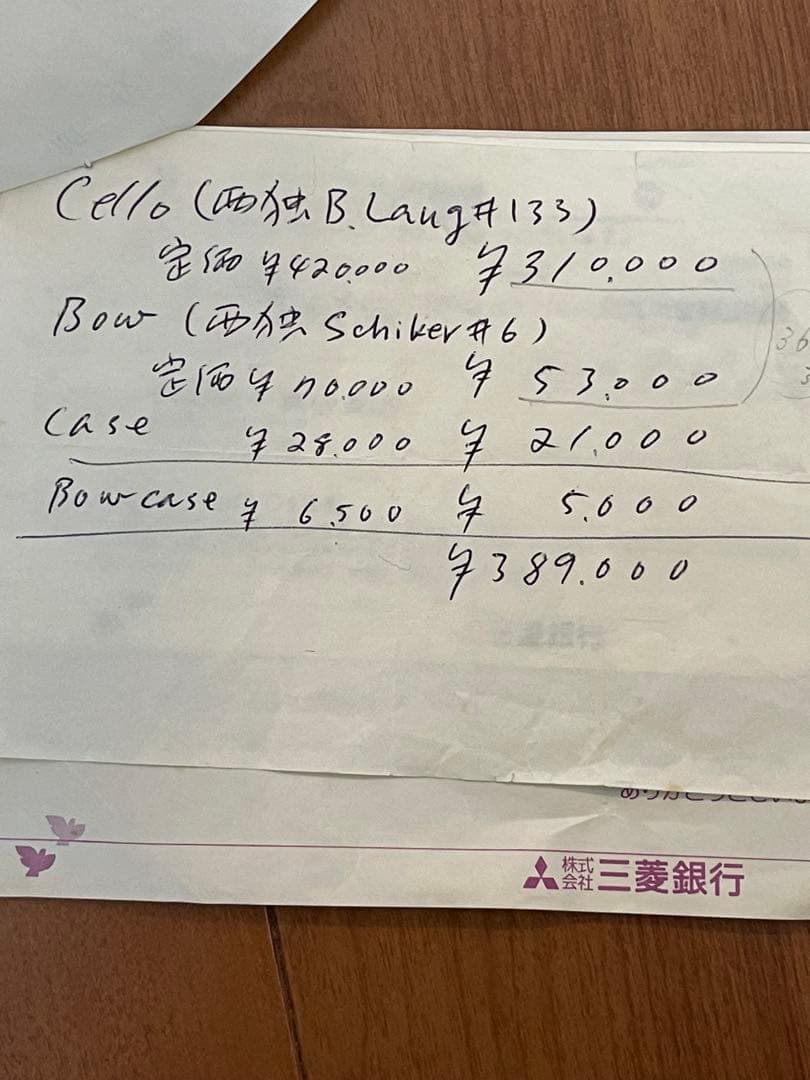 Cello (西独B.Lang#133)
定価 ¥420.000 ¥310.000
Bow (西独Schiker#6)
定価 ¥70.000 ¥53.000
36
3
Case ¥28.000 ¥21.000
Bow case ¥6.500 ¥5.000
¥389.000
ありがとうござい
株式会社三菱銀行